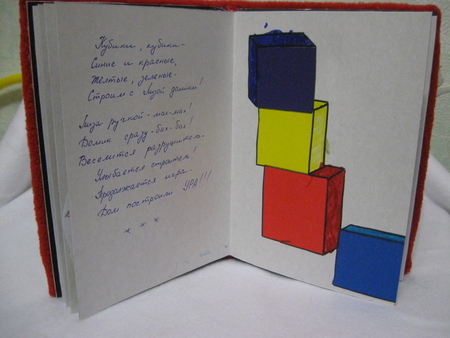 Кубики, кубики-
Синие и красные,
Жёлтые, зелёные-
Строим с Лизой домики!
Лиза ручкой-мах-мах!
Домик сразу-бах-бах!
Веселится разрушитель-
Улыбается строитель!
Продолжается игра-
Дом построили УРА!!!
* * *